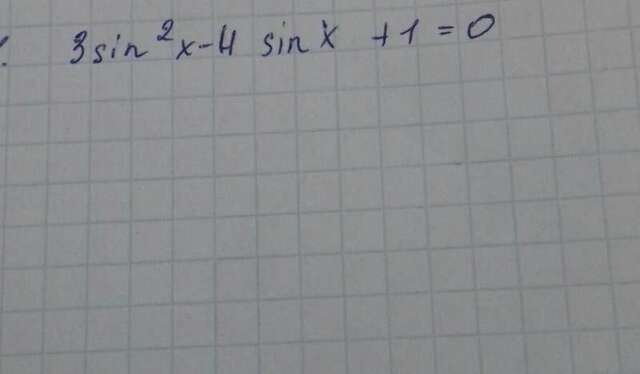 3sin²x-4 sinx +1=0